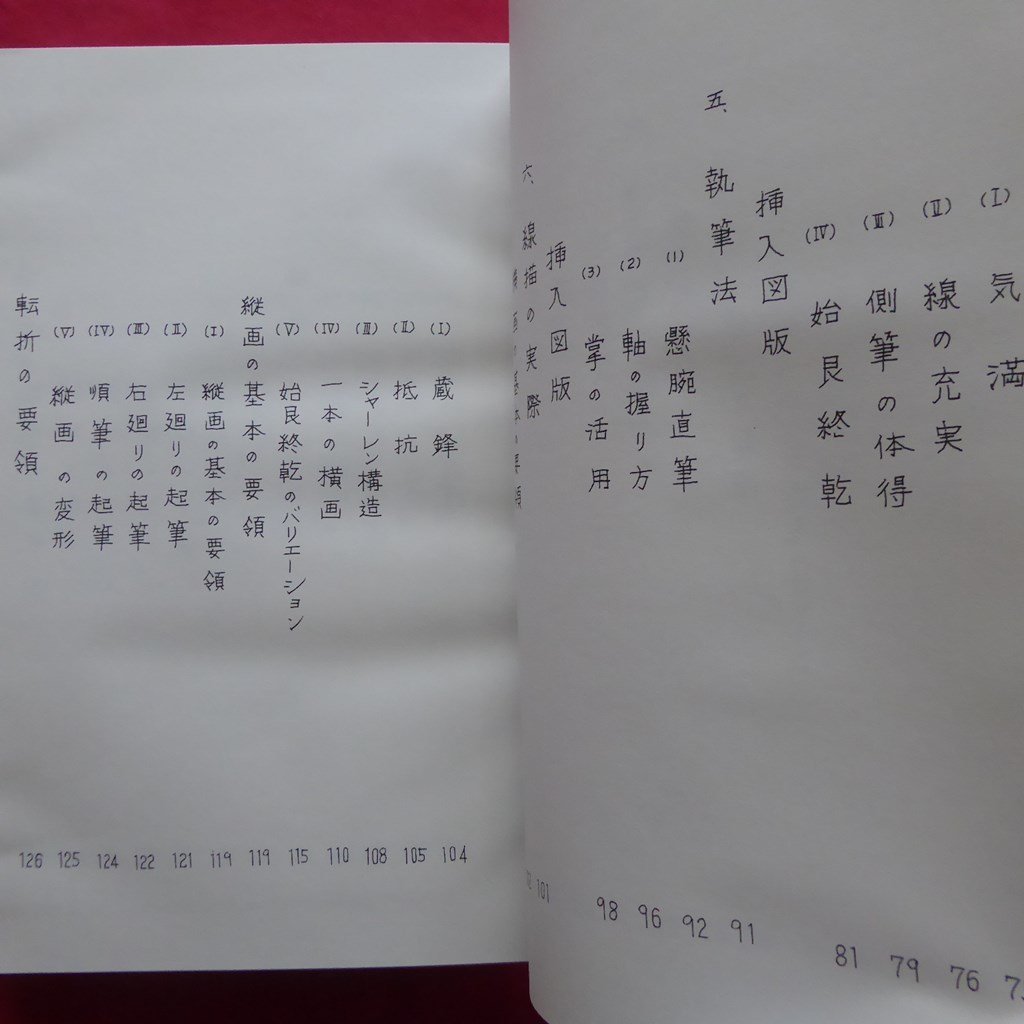 (I) 気満
(II) 線の充実 76
(III) 側筆の体得 79
(IV) 始艮終乾 81
挿入図版
五、執筆法 91
(1) 懸腕直筆 92
(2) 軸の握り方 96
(3) 掌の活用 98
挿入図版
六、線描の実際 101
画の基本の要領
(I) 蔵鋒 104
(II) 抵抗 105
(III) シャーレン構造 108
(IV) 一本の横画 110
(V) 始艮終乾のバリエーション 115
縦画の基本の要領 119
(I) 縦画の基本の要領 119
(II) 左廻りの起筆 121
(III) 右廻りの起筆 122
(IV) 順筆の起筆 124
(V) 縦画の変形 125
転折の要領 126